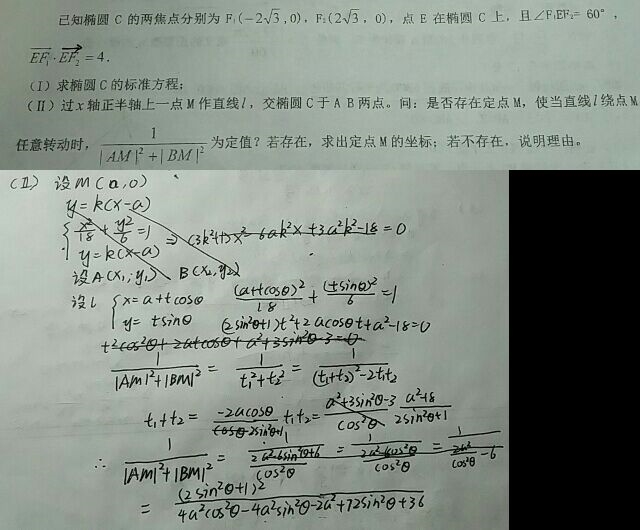 已知椭圆 C 的两焦点分别为 F₁(−2√3,0), F₂(2√3, 0), 点 E 在椭圆 C 上, 且∠F₁EF₂= 60°,
EF₁·EF₂=4.
(Ⅰ) 求椭圆 C 的标准方程;
(Ⅱ) 过 x 轴正半轴上一点 M 作直线 l, 交椭圆 C 于 A B 两点。问: 是否存在定点 M, 使当直线 l 绕点 M
任意转动时, 1/(|AM|²+|BM|²) 为定值? 若存在, 求出定点 M 的坐标; 若不存在, 说明理由。
(Ⅱ) 设M(a,0)
y=k(x-a)
{x²/18+y²/6=1
y=k(x-a) ⇒ (3k²+1)x²-6ak²x+3a²k²-18=0
设A(x₁,y₁) B(x₂,y₂)
设l {x=a+tcosθ (a+tcosθ)²/18+(tsinθ)²/6=1
y=tsinθ (2sin²θ+1)t²+2acosθt+a²-18=0
t²cos²θ+2atcosθ+a²+3sin²θ-3=0
1/(|AM|²+|BM|²)=1/(t₁²+t₂²)=1/((t₁+t₂)²-2t₁t₂)
t₁+t₂=-2acosθ/(2sin²θ+1) t₁t₂=(a²+3sin²θ-3)/cos²θ (a²-18)/(2sin²θ+1)
∴ 1/(|AM|²+|BM|²)=1/((2a²-6sin²θ+6)/cos²θ)=1/((2a²-6cos²θ)/cos²θ)=1/(2a²/cos²θ-6)
=(2sin²θ+1)²/(4a²cos²θ-4a²sin²θ-2a²+72sin²θ+36)